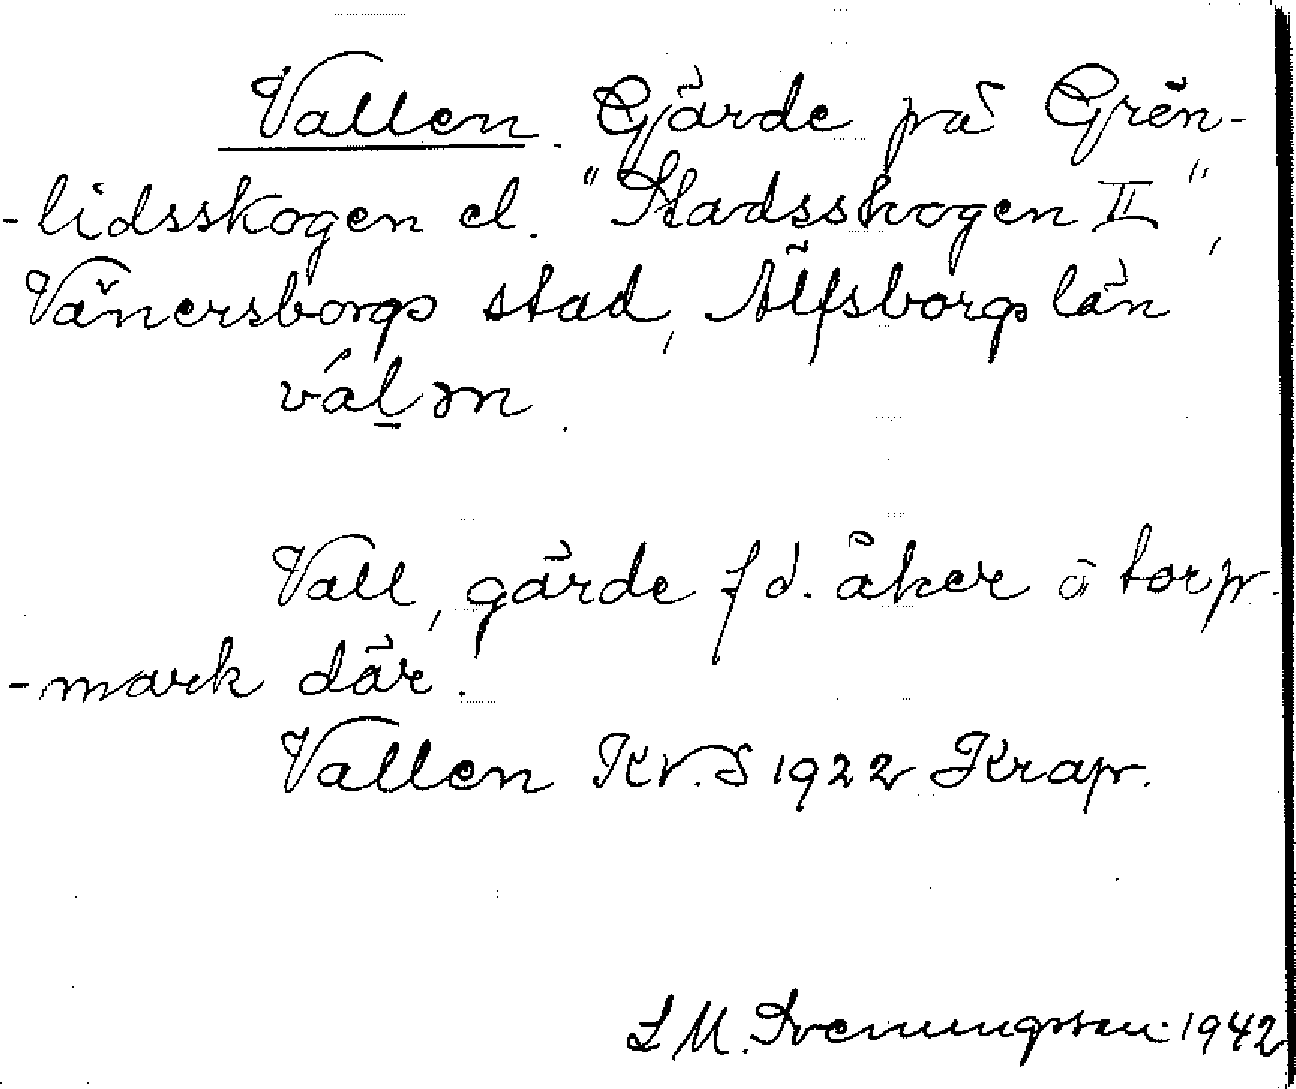 Vallen. Gärde på Grön-
-lidsskogen el. "Stadsskogen II",
Vänersborgs stad, Älfsborgs län
váḻɘn.
Vall, gärde f d. åker å torp-
-mark där.
Vallen Kr.S 1922 Krap.
L M. Svenungsson 1942